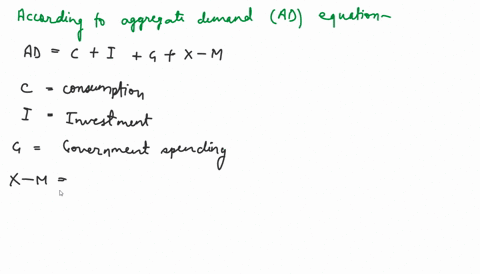 According to aggregate demand (AD) equation-
AD = C + I + G + X-M
C = consumption
I = Investment
G = Government spending
X-M =